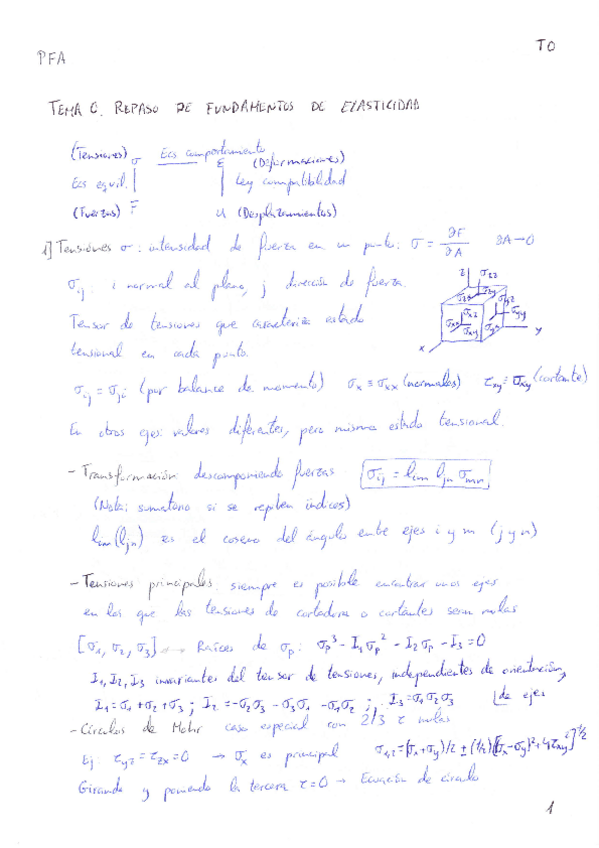 T0
PFA
TEMA 0. REPASO DE FUNDAMENTOS DE ELASTICIDAD
(Tensiones) σ Ecs comportamiento ε (Deformaciones)
Ecs equil. Ley compatibilidad
(Fuerzas) F u (Desplazamientos)
1] Tensiones σ: intensidad de fuerza en un punto: σ = ∂F/∂A ∂A→0
σij: i normal al plano, j dirección de fuerza.
Tensor de tensiones que caracteriza estado
tensional en cada punto.
z σzz
y
x
σij = σji (por balance de momento) σx ≡ σxx (normales) τxy ≡ σxy (cortante)
En otros ejes: valores diferentes, pero mismo estado tensional.
- Transformación: descomponiendo fuerzas σij = lim ljn σmn
(Nota: sumatorio si se repiten índices)
lim (ljn) es el coseno del ángulo entre ejes i y m (j y n)
- Tensiones principales: siempre es posible encontrar unos ejes
en los que las tensiones de cortadura o cortantes sean nulas
[σ1, σ2, σ3] → Raíces de σp: σp³ - I1σp² - I2σp - I3 = 0
I1, I2, I3 invariantes del tensor de tensiones, independientes de orientación
de ejes
I1 = σ1 + σ2 + σ3 ; I2 = -σ2σ3 - σ3σ1 - σ1σ2 ; I3 = σ1σ2σ3
- Círculos de Mohr caso especial con 2/3 τ nulas
Ej: τyz = τzx = 0 → σz es principal σ1,2 = (σx+σy)/2 ± (1/2)[(σx-σy)²+4τxy²]^1/2
Girando y poniendo la tercera τ=0 → Ecuación de círculo
1